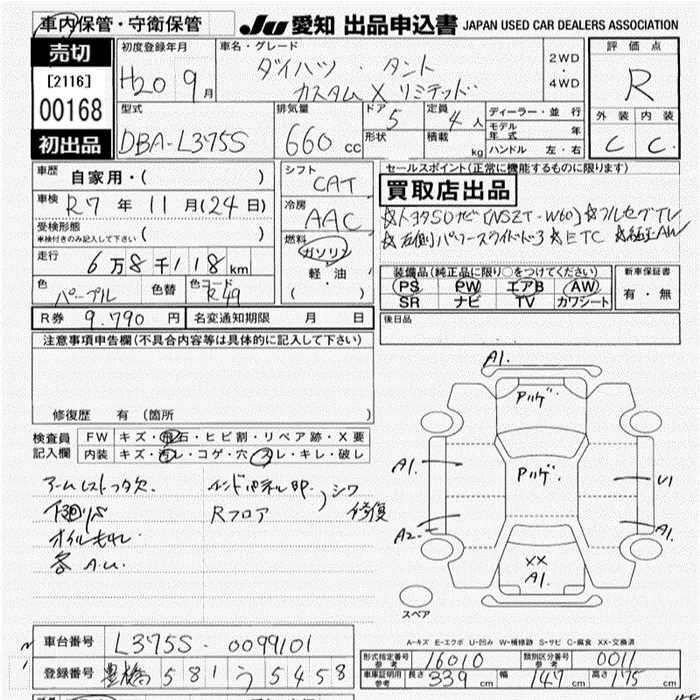 車内保管・守衛保管
JU 愛知 出品申込書 JAPAN USED CAR DEALERS ASSOCIATION
売切
[2116]
00168
初出品
初度登録年月
H20 9月
車名・グレード
ダイハツ ・ タント
カスタム X リミテッド
2WD
・
4WD
評価点
R
外装 内装
C C
型式
DBA-L375S
排気量
660 cc
ドア 5
形状
定員 4 人
積載 kg
ディーラー・並行
モデル年式 年
ハンドル 左・右
車歴
自家用・( )
車検
R7 年 11 月(24日)
受検形態
車検付きのみ記入して下さい ( )
走行
6万8千118km
色
パープル
色替
色コード
R49
シフト
CAT
冷房
AAC
燃料
ガソリン
軽・油
( )
セールスポイント(正常に機能するものに限ります)
買取店出品
☆トヨタSDナビ[NSZT-W60] ☆フルセグTV
☆左側パワースライドドア ☆ETC ☆純正AW
装備品(純正品に限り○をつけてください)
PS PW エアB AW
SR ナビ TV カワシート
新車保証書
有・無
R券 9,790 円
名変通知期限 月 日
後日品
注意事項申告欄(不具合内容等は具体的に記入して下さい)
修復歴 有 (箇所 )
検査員
記入欄
FW キズ・飛石・ヒビ割・リペア跡・X要
内装 キズ・汚レ・コゲ・穴・スレ・キレ・破レ
アームレストフタ欠
下廻りS
オイルもれ
各A.U.
エンドパネル
Rフロア
シワ
修復
A1.
Pハゲ
A1.
Pハゲ
U1
A2.
A1.
XX
A1.
スペア
A-キズ E-エクボ U-凹み W-補修跡 S-サビ C-腐食 XX-交換済
車台番号 L375S-0099101
登録番号 豊橋 581 う 5458
形式指定番号
参考
16010
類別区分番号
参考
0011
車庫証明用
参考
長さ 339 cm 幅 147 cm 高さ 175 cm